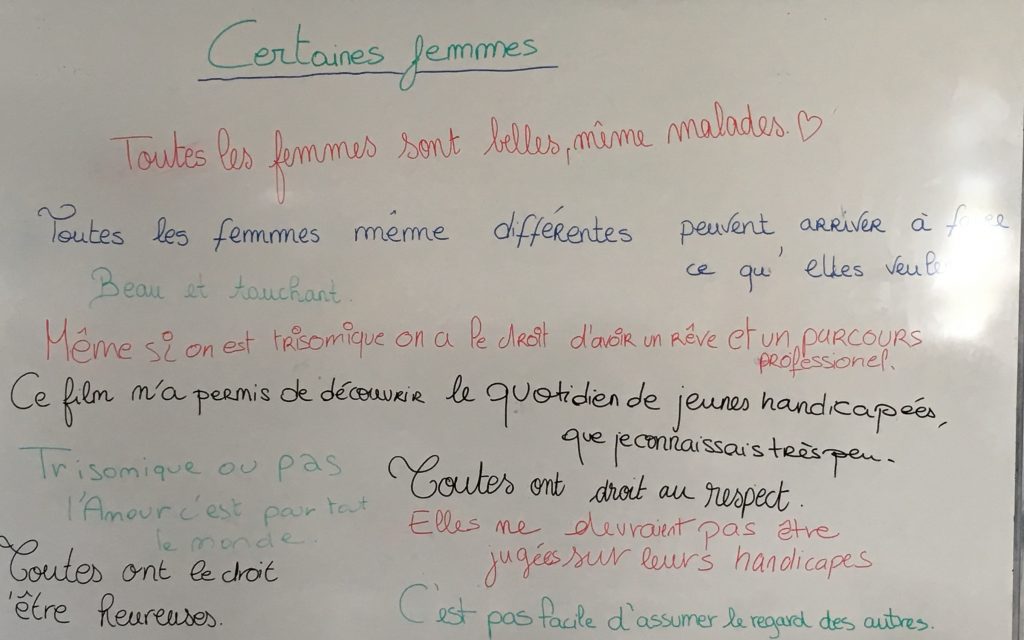 Certaines femmes
Toutes les femmes sont belles, même malades. ♡
Toutes les femmes même différentes peuvent arriver à
ce qu'elles
Beau et touchant.
Même si on est trisomique on a le droit d'avoir un rêve et un parcours
professionel.
Ce film m'a permis de découvrir le quotidien de jeunes handicapées,
que je connaissais très peu.
Trisomique ou pas
l'Amour c'est pour tout
le monde.
Toutes ont droit au respect.
Elles ne devraient pas être
jugées sur leurs handicapes
Toutes ont le droit
'être heureuses.
C'est pas facile d'assumer le regard des autres.